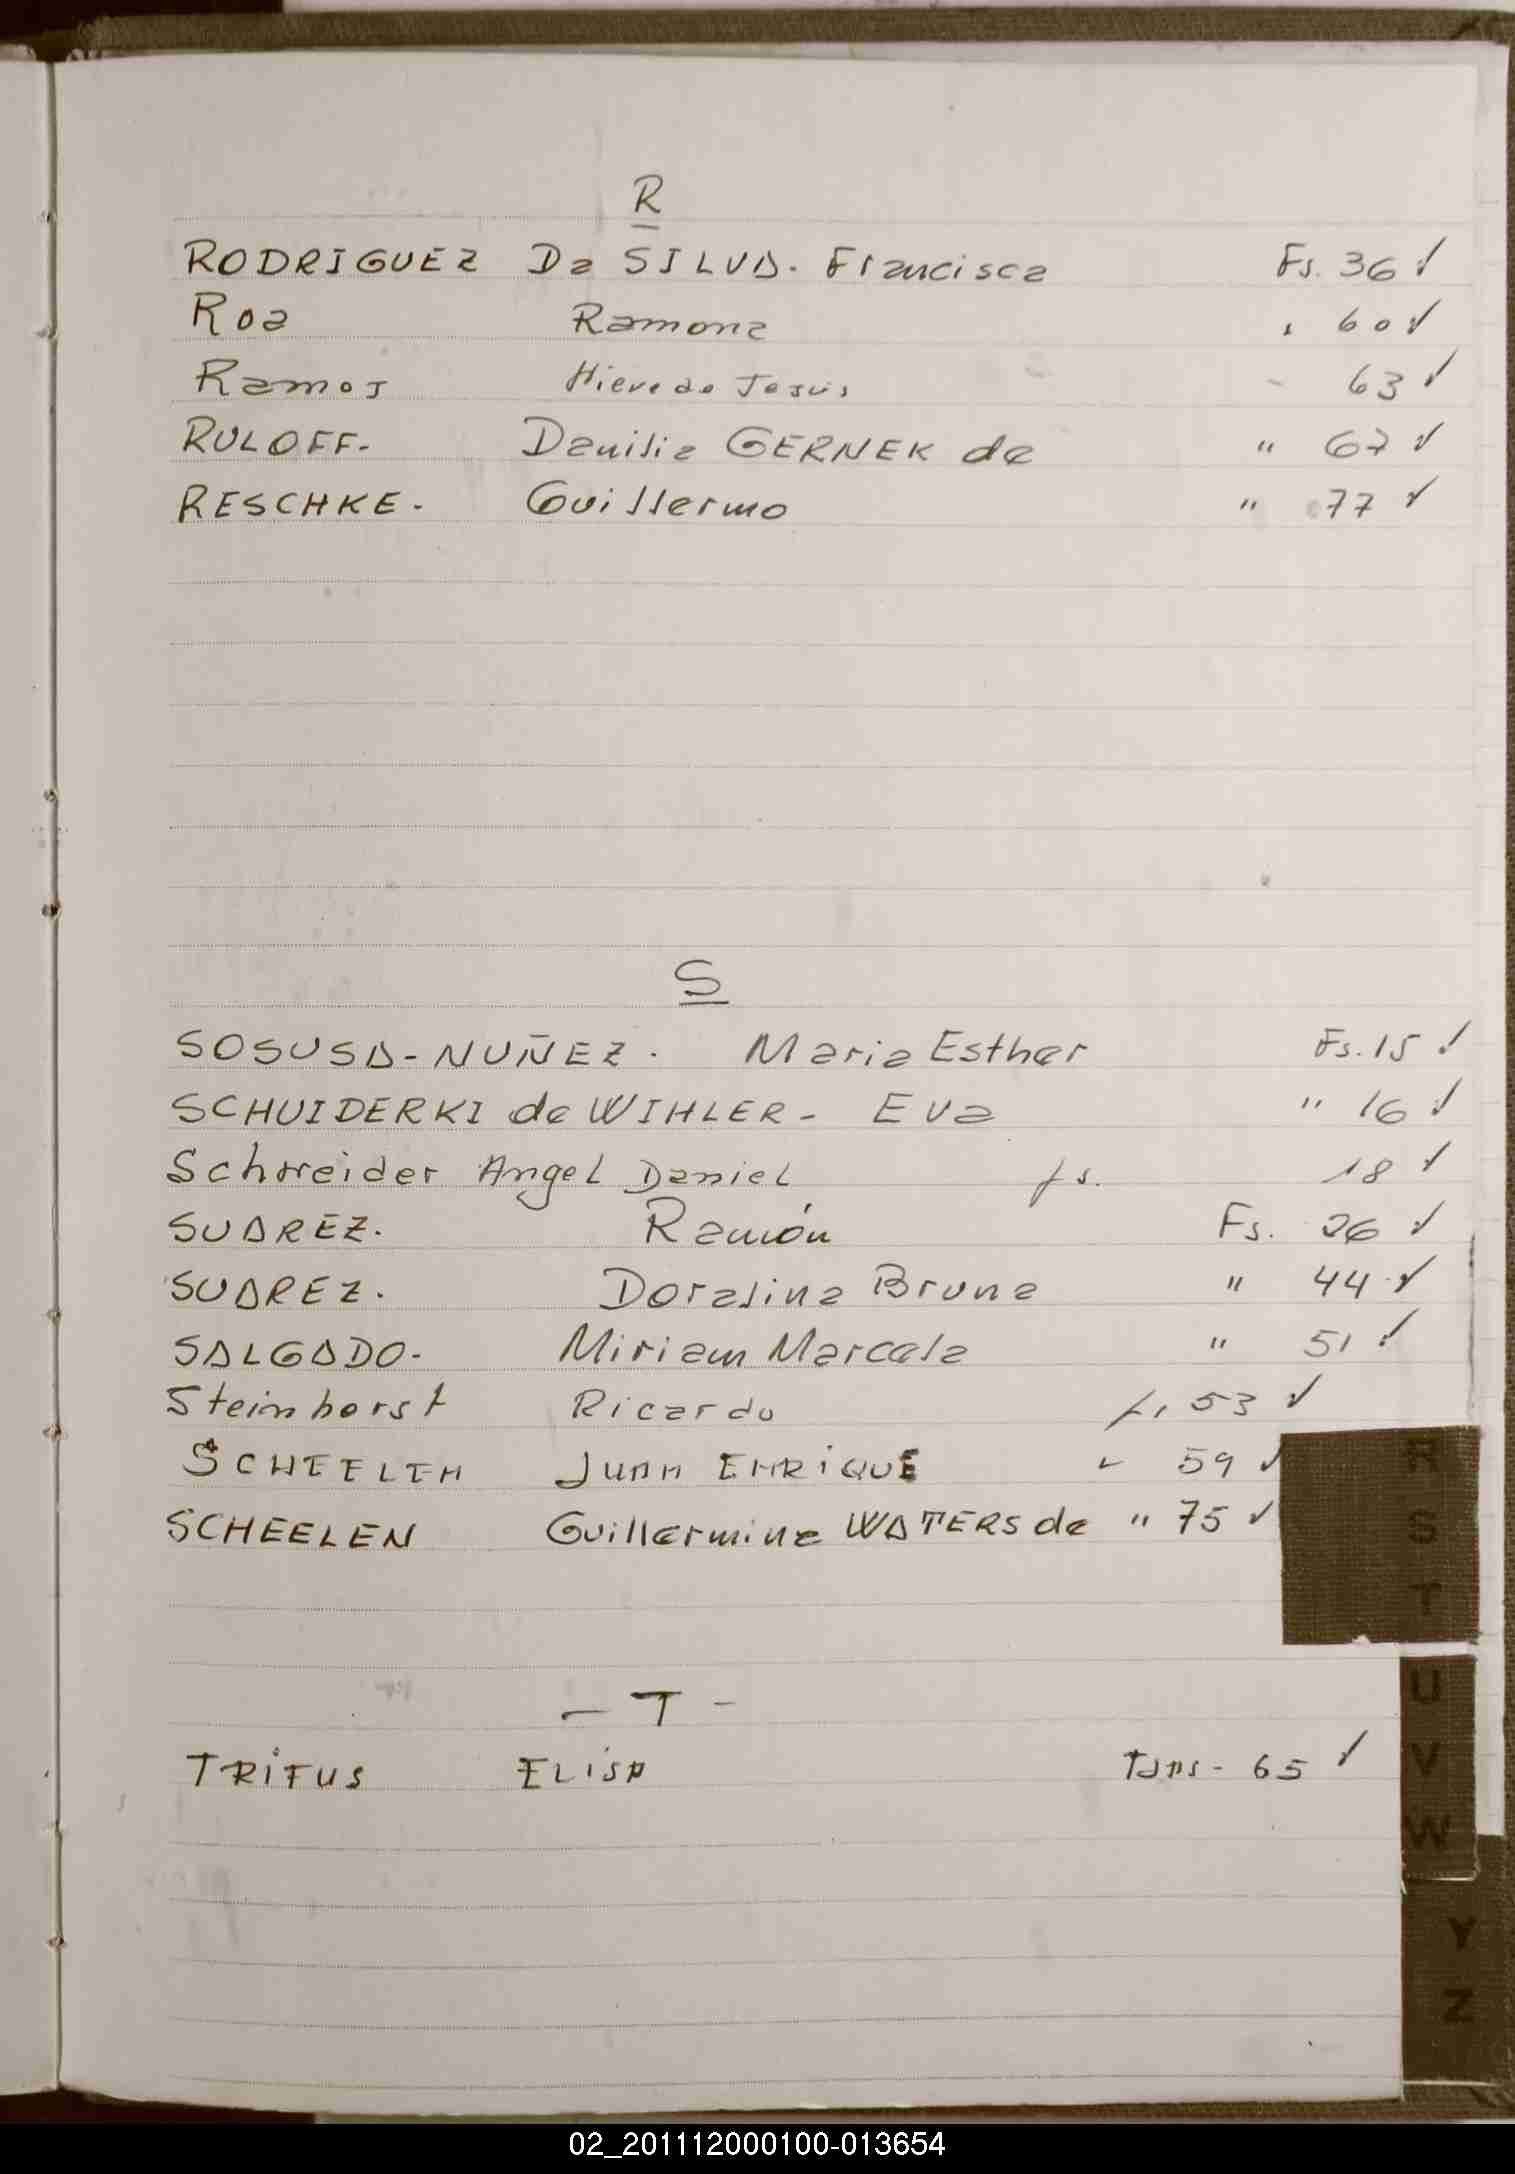 R
RODRIGUEZ Da SILVA. Francisca Fs. 36 ✓
Roa Ramona " 60 ✓
Ramos Jesús 63 ✓
RULOFF- Danilia GERNEK de " 67 ✓
RESCHKE- Guillermo " 77 ✓
S
SOSUSA-NUÑEZ. Maria Esther Fs. 15 ✓
SCHUIDERKI de WIHLER- Eva " 16 ✓
Schneider Angel Daniel fs. 18 ✓
SUAREZ. Ramón Fs. 26 ✓
SUAREZ. Doralina Bruna " 44 ✓
SALGADO- Miriam Marcela " 51 ✓
Steinhorst Ricardo f, 53 ✓
SCHEELEN JUAN ENRIQUE " 59 ✓
SCHEELEN Guillermina WATERS de " 75 ✓
- T -
TRIFUS ELISA 65 ✓
R
S
T
U
V
W
Y
Z
02_201112000100-013654